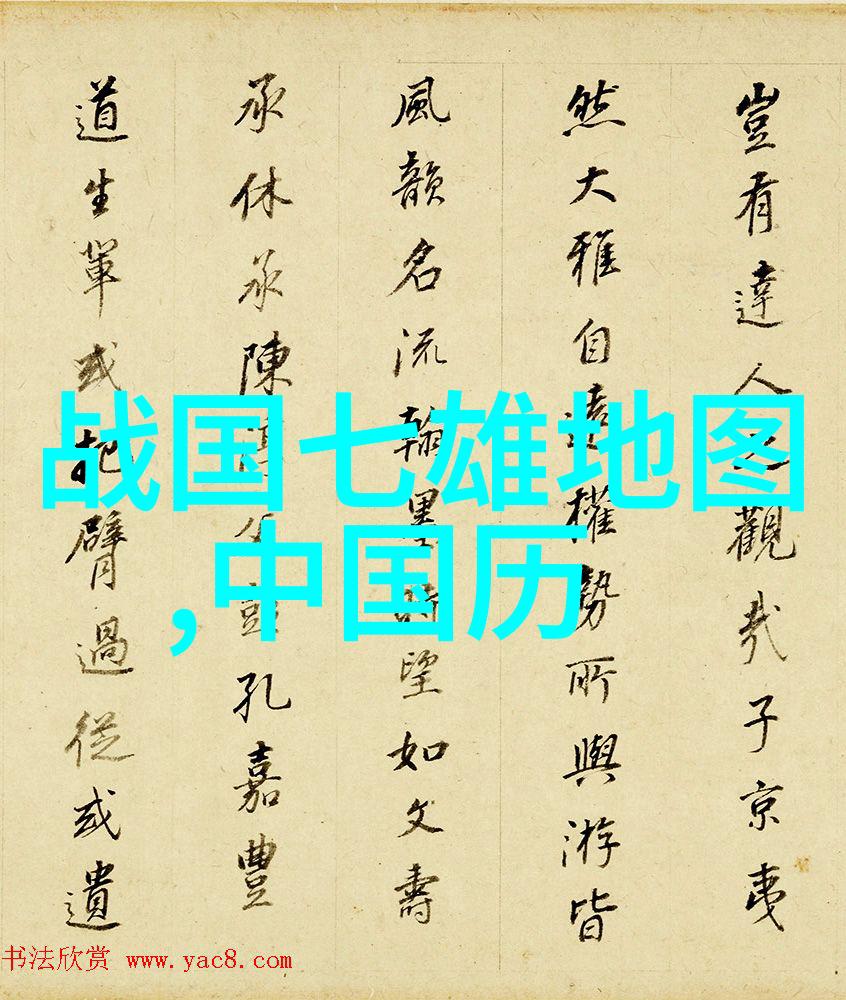 豈有達人之觀哉子京夷
然大雅自遠權勢所與游皆
風韻名流翰墨時望如文壽
承休承陳淳父彭孔嘉豐
道生輩或把臂過從或遺
战国七雄地图
,中国历
书法欣赏 www.yac8.com